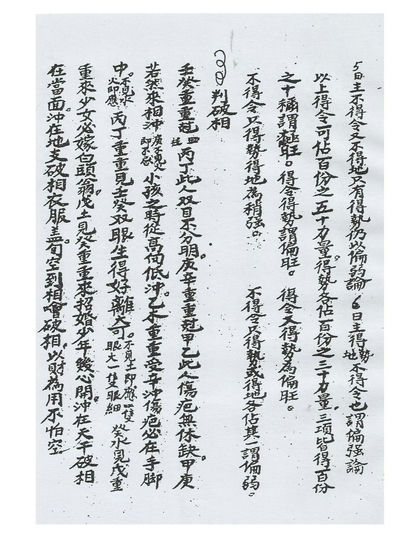 5日主不得令又不得地只有得勢仍以偏弱論 6日主得勢地不得令也謂偏強論
以上得令可佔百份之五十力量。得勢各佔百份之三十力量。三項皆得百份
之十稱謂極旺。得令得勢謂偏旺。 得令不得勢為偏旺。
不得令只得勢得地為稍強。 不得令只得勢或得地各佔其一謂偏弱。
判破相
壬癸重重冠四柱丙丁此人双目不分明。庚辛重重冠甲乙此人傷疤無休缺甲庚
若然來相沖 小孩之時從高向低沖。乙木重重受辛沖傷疤必在手脚
中。不見水火即應 丙丁重重見壬癸双眼生得好離奇 不見土即應眼大一隻眼細 癸水見戊重
重來少女必嫁白頭翁。戊土見癸重重來招婚少年幾心開。沖在天干破相
在當面。沖在地支破相衣服盖。旬空到相會破相。以財為用不怕空